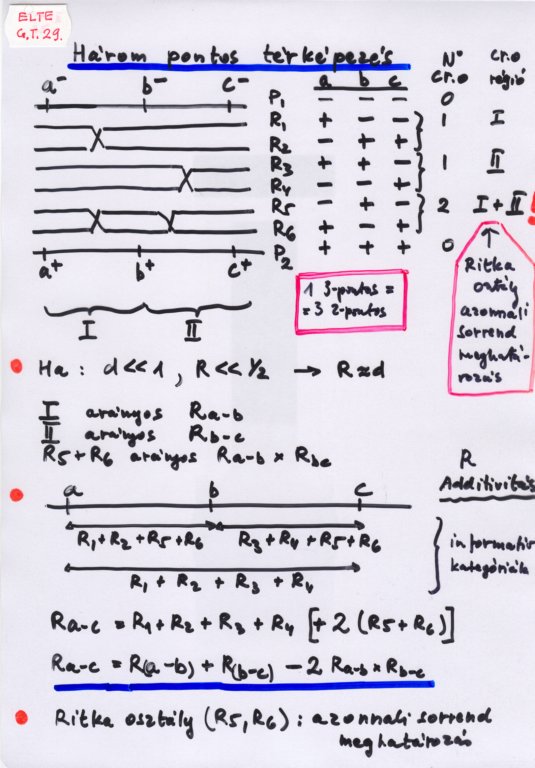 ELTE
G.T. 29.
Három pontos térképezés
a⁻ b⁻ c⁻
a b c
N° cr.o
cr.o régió
P₁ − − − 0
R₁ + − −
R₂ − + +
1 I
R₃ + + −
R₄ − − +
1 II
R₅ − + −
R₆ + − +
2 I + II !
P₂ + + + 0
a⁺ b⁺ c⁺
I II
1 3-pontos =
= 3 2-pontos
Ritka
osztály
azonnali
sorrend
meghatá-
rozás
Ha : d << 1 , R << ½ → R ≈ d
I arányos Ra-b
II arányos Rb-c
R5 + R6 arányos Ra-b × Rbc
R
Additivitás
a b c
R₁+R₂+R5+R6 R₃+R₄+R5+R6
R₁ + R₂ + R₃ + R₄
informatív
kategóriák
Ra-c = R₁+R₂+R₃+R₄ [+ 2 (R5+R6)]
Ra-c = R(a-b) + R(b-c) − 2 Ra-b × Rb-c
Ritka osztály (R5, R6) : azonnali sorrend
meghatározás